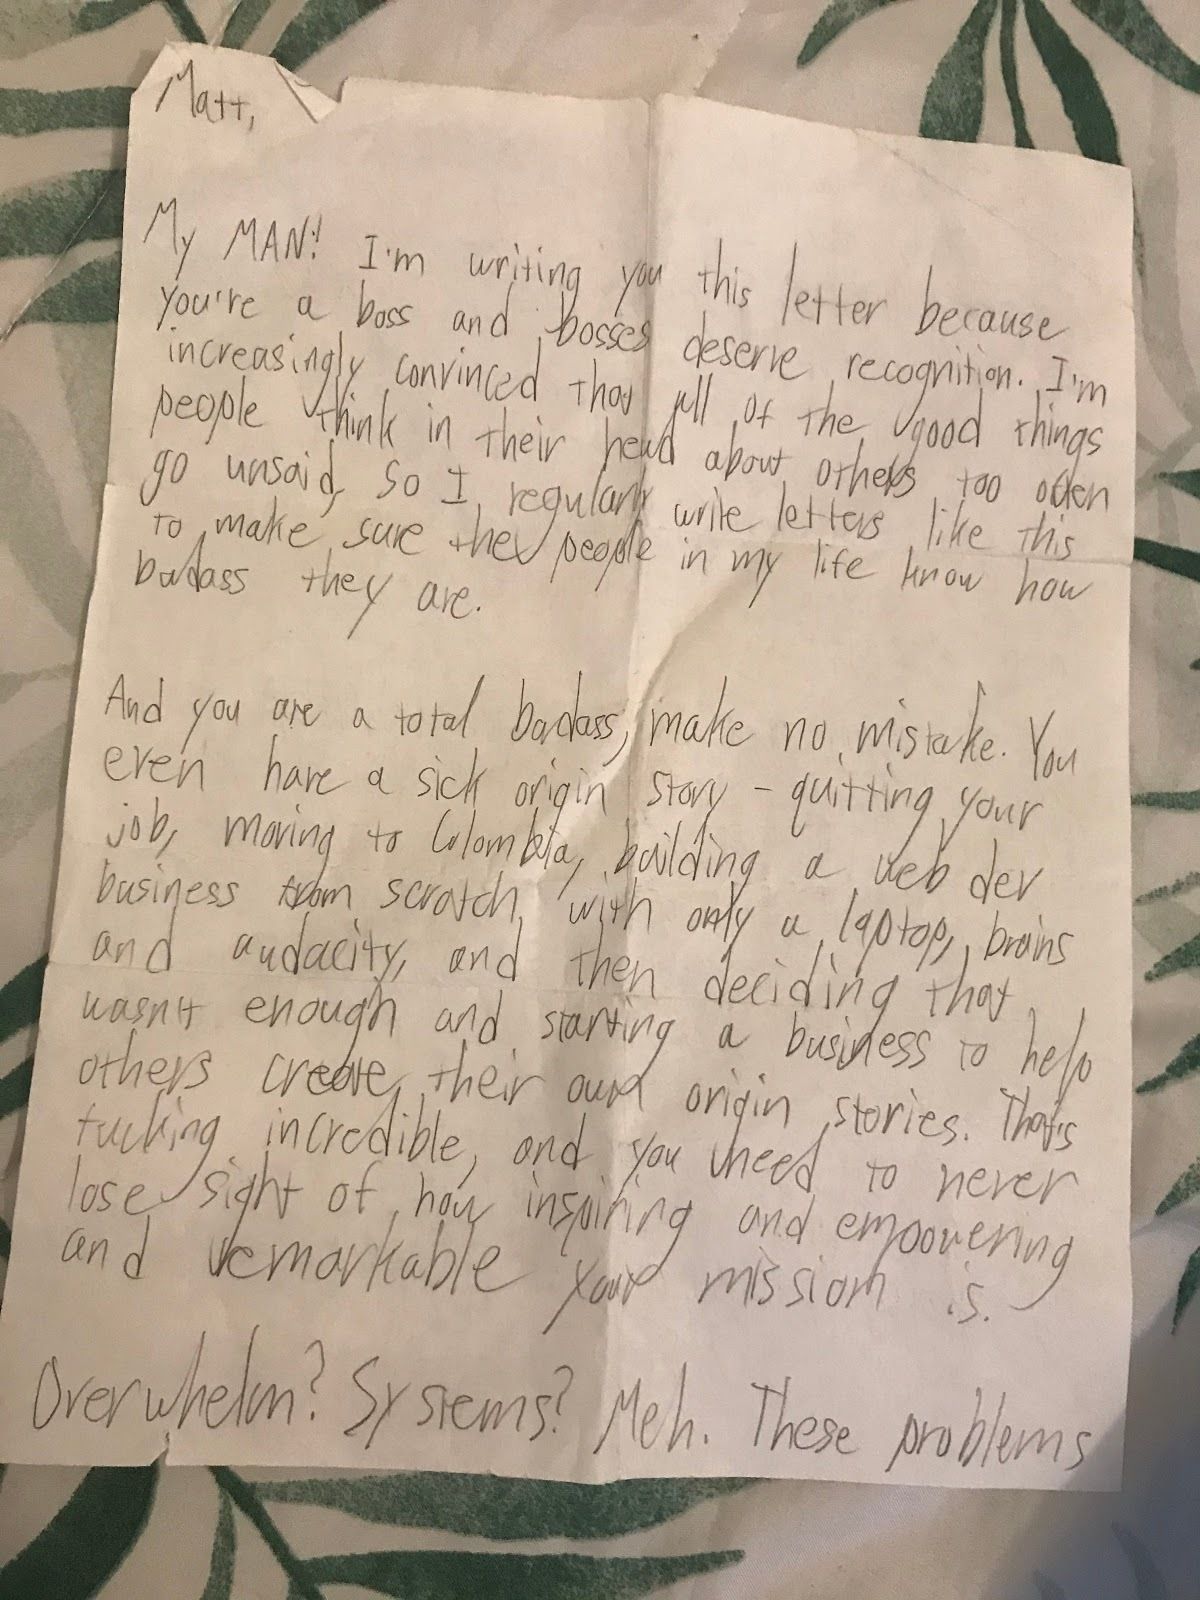 Matt,
My MAN! I'm writing you this letter because
you're a boss and bosses deserve recognition. I'm
increasingly convinced that all of the good things
people think in their head about others too often
go unsaid, so I regularly write letters like this
to make sure the people in my life know how
badass they are.
And you are a total badass, make no mistake. You
even have a sick origin story - quitting your
job, moving to Colombia, building a web dev
business from scratch with only a laptop, brains
and audacity, and then deciding that
wasn't enough and starting a business to help
others create their own origin stories. That's
fucking incredible, and you need to never
lose sight of how inspiring and empowering
and remarkable your mission is.
Overwhelm? Systems? Meh. These problems